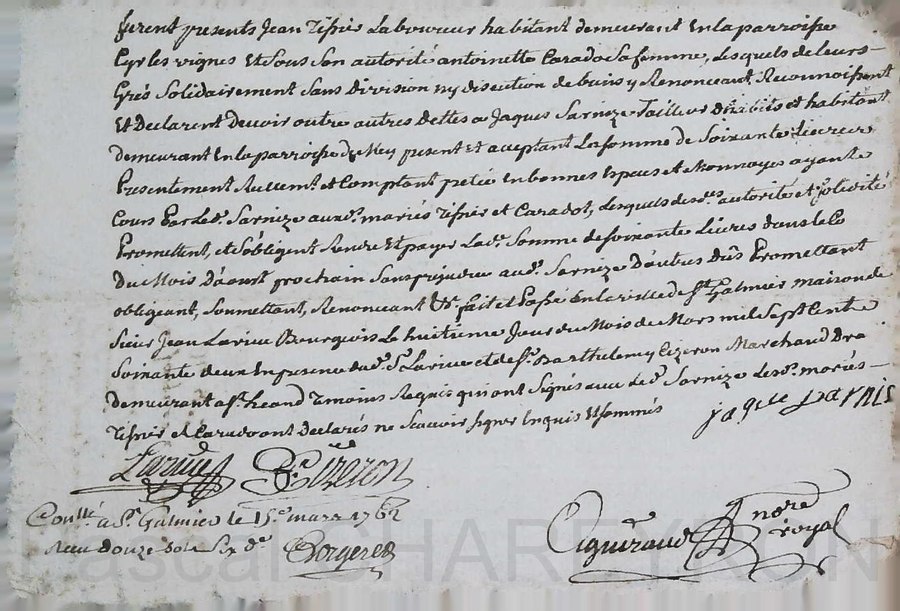 furent presents Jean Tissier Laboureur habitant demeurant En la parroisse
Cyr les vignes Et sous son autorité antoinette Caradot sa femme, Lesquels de leurs
Grés Solidairement Sans Division ny discution de biens y Renonceant, Reconnoissent
Et Declarent Devoir outre autres dettes a Jaques Sarnize Tailleur d'habits et habitant
demeurant En la parroisse de present Et aceptant La somme de Soixante Livres
Presentement Reellemt. et Comptant pretée En bonnes Especes et Monnoyes ayants
Cours Par Led. Sarnize auxd. mariés Tissier et Caradot, Lesquels desds. autorité et solidité
Promettent, et s'obligent Rendre Et payer Lad. Somme de soixante Livres dans le
Du Mois D'aoust prochain Sans prejudice aud. Sarnize D'autres Dûs Promettant
obligeant, Soumettant, Renonceant &c fait et Passé En la ville de St. Galmier maison de
Sieur Jean Larive Bourgeois Le huitieme Jour du Mois de Mars mil Sept Cents
Soixante deux En presence dud. Sr. Larive et de Sr. Barthelemy Cizeron Marchand
Demeurant a St. Temoins Requis qui ont Signés avec led. Sarnize Lesd. mariés
Tissier et Caradot ont Declarés ne Scavoir signer Enquis Et sommés
jaque sarnis
Larive B. Cizeron
Conllé a St. Galmier le 15e. mars 1762
Reçu Douze sols Six de. Bergeron
Aigueraud Nore royal
Pascal CHAREYRON